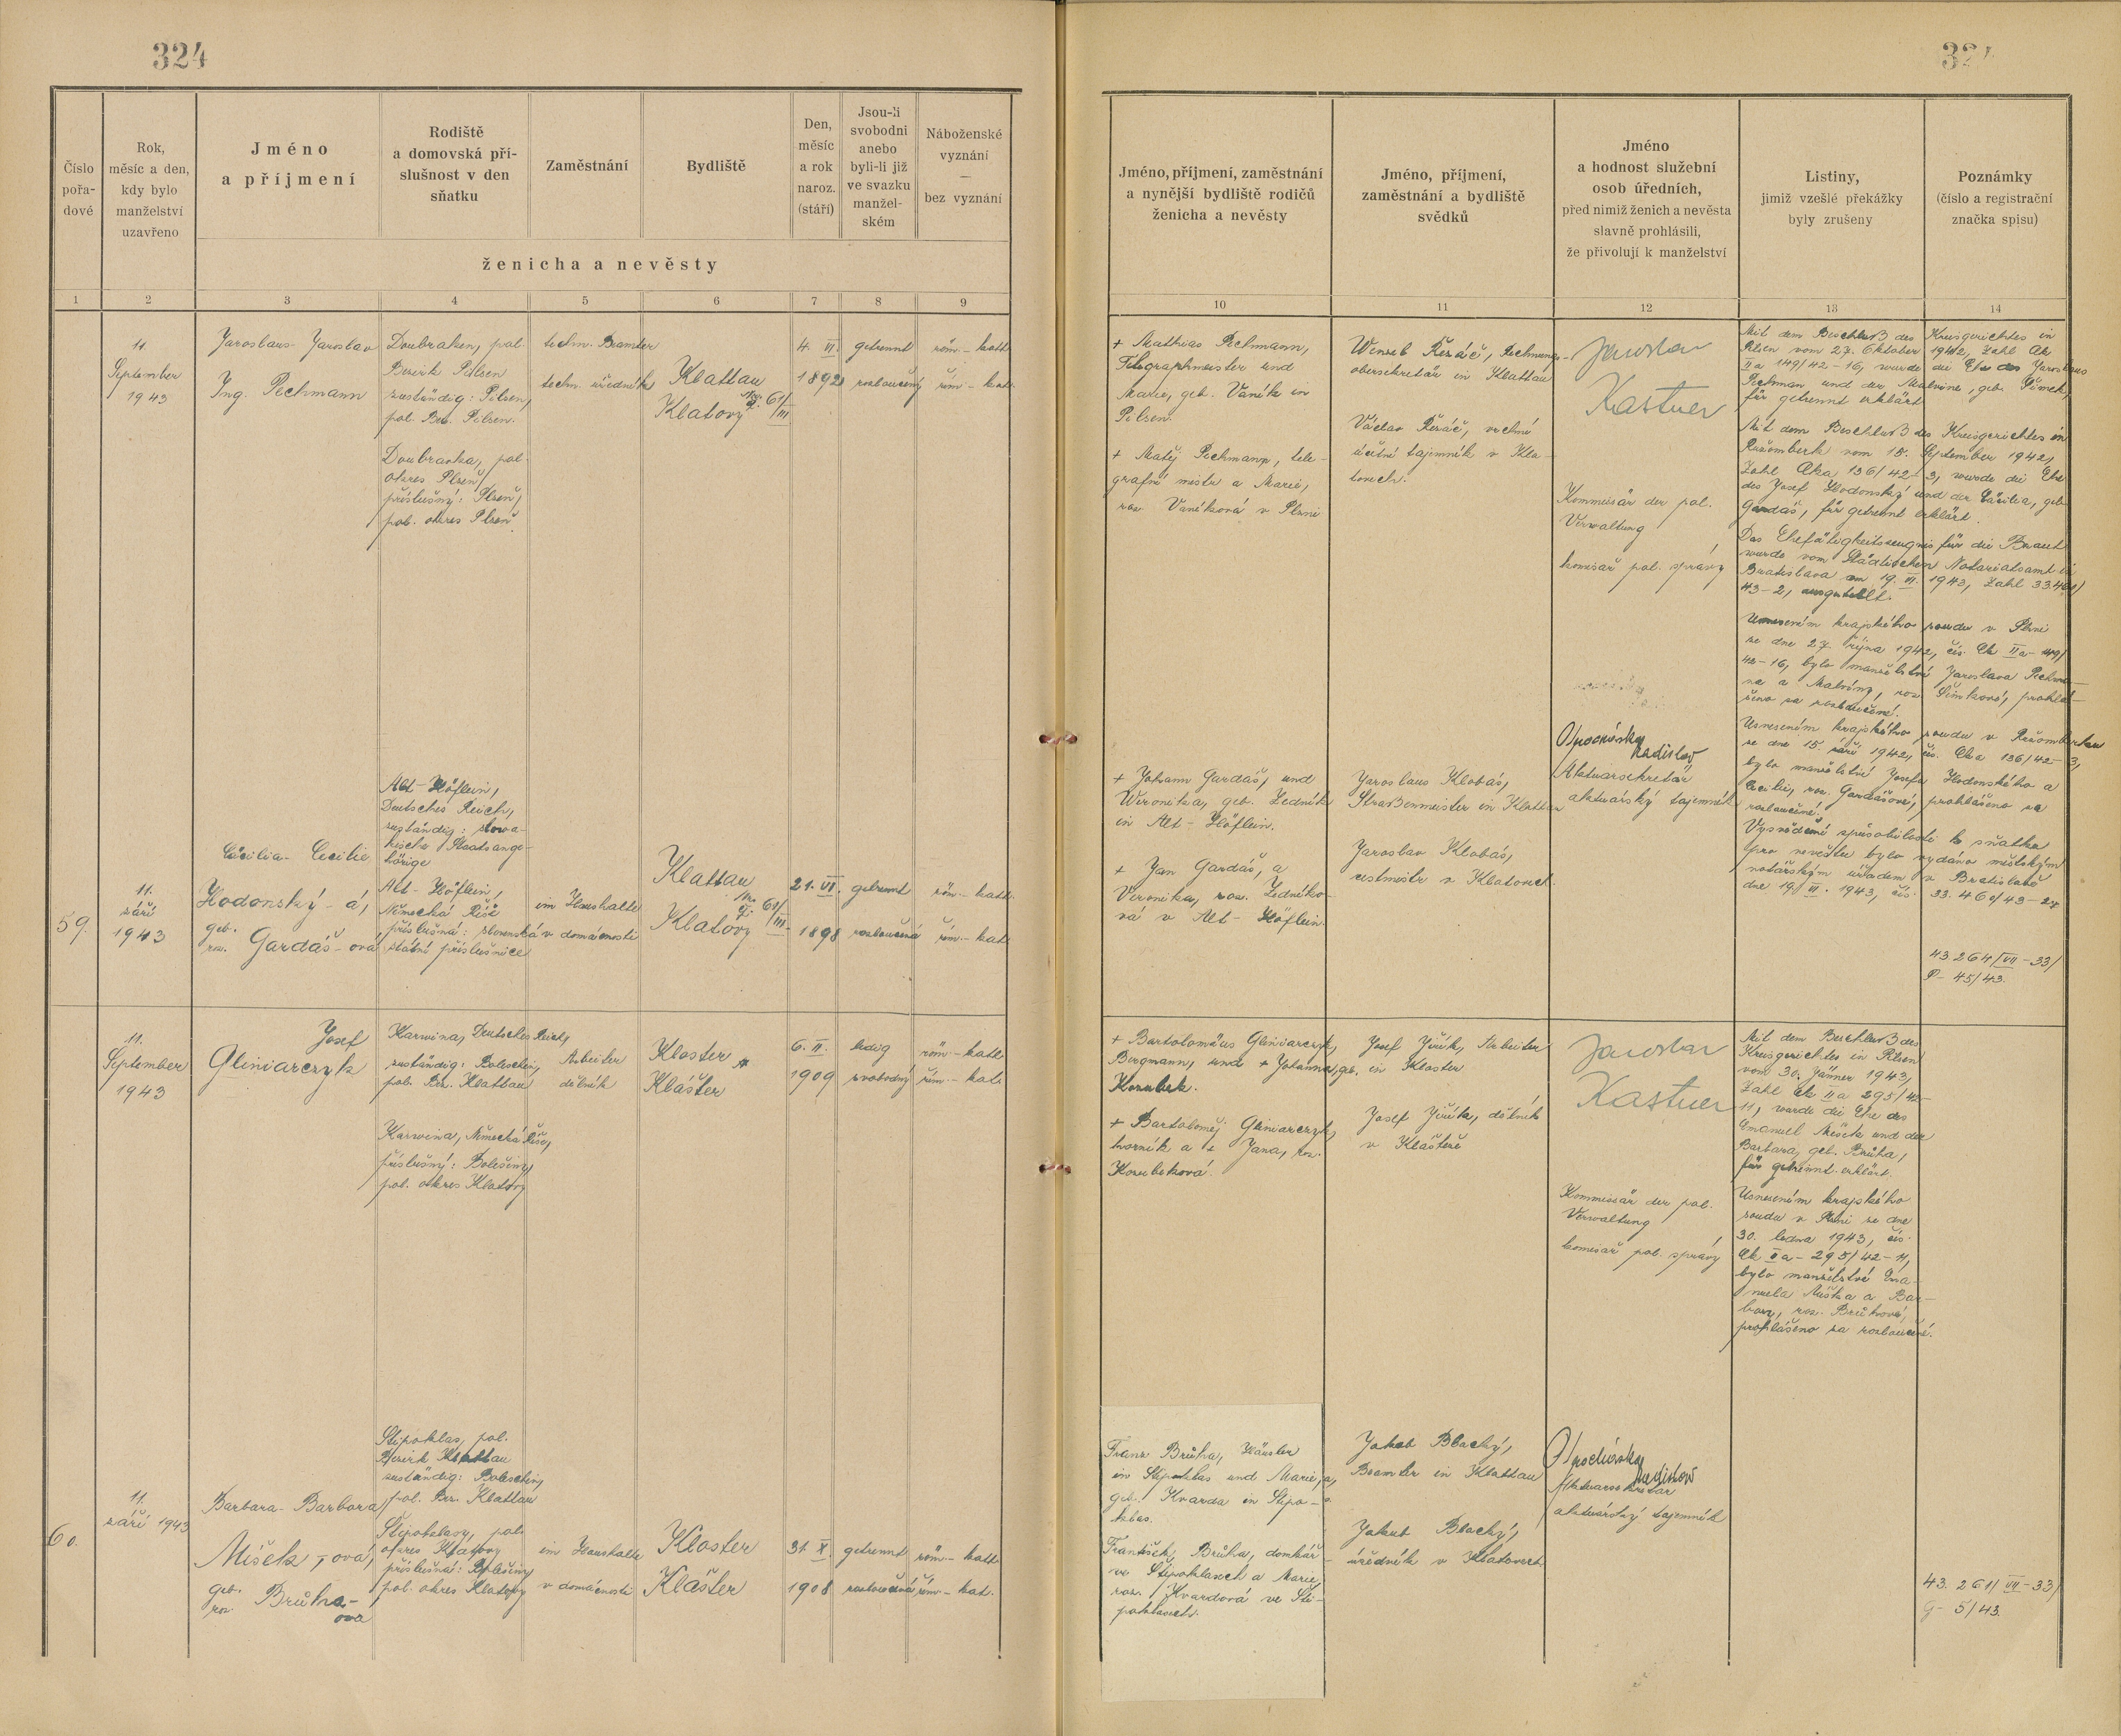 324
324
Číslo
pořa-
dové
Rok,
měsíc a den,
kdy bylo
manželství
uzavřeno
Jméno
a příjmení
Rodiště
a domovská pří-
slušnost v den
sňatku
Zaměstnání
Bydliště
Den,
měsíc
a rok
naroz.
(stáří)
Jsou-li
svobodni
anebo
byli-li již
ve svazku
manžel-
ském
Náboženské
vyznání
—
bez vyznání
ženicha a nevěsty
Jméno, příjmení, zaměstnání
a nynější bydliště rodičů
ženicha a nevěsty
Jméno, příjmení,
zaměstnání a bydliště
svědků
Jméno
a hodnost služební
osob úředních,
před nimiž ženich a nevěsta
slavně prohlásili,
že přivolují k manželství
Listiny,
jimiž vzešlé překážky
byly zrušeny
Poznámky
(číslo a registrační
značka spisu)
1 2 3 4 5 6 7 8 9
10 11 12 13 14
11
September
1943
Jaroslaus- Jaroslav
Ing. Pechmann
Doubraken, pol.
Bezirk Pilsen
zuständig: Pilsen,
pol. Bez. Pilsen.
Doubravka, pol.
okres Plzeň
příslušný: Plzeň,
pol. okres Plzeň
techn. Beamter
techn. úředník
Klattau
Klatovy 61/III
4. VI.
1892
getrennt
rozloučený
röm.-kath
řím.-kat.
+ Mathias Pechmann,
Telegraphmeister und
Marie, geb. Vaněk in
Pilsen.
+ Matěj Pechmann, tele-
grafní mistr a Marie,
roz. Vaněková v Plzni
Wenzel Řezáč, Rechnungs-
obersekretär in Klattau
Václav Řezáč, vrchní
účetní tajemník v Kla-
tovech.
Jaroslav
Kastner
Kommissär der pol.
Verwaltung
komisař pol. správy
Mit dem Beschluß des Kreisgerichtes in
Pilsen vom 27. Oktober 1942, Zahl Ck
IIa 149/42-16, wurde die Ehe des Jaroslaus
Pechman und der Malvine, geb. Šimek,
für getrennt erklärt
Mit dem Beschluß des Kreisgerichtes in
Ružomberk vom 15. September 1942,
Zahl Cka 136/42-3, wurde die Ehe
des Josef Hodonský und der Cäcilia, geb.
Gardaš, für getrennt erklärt.
Das Ehefähigkeitszeugnis für die Braut
wurde vom Städtischen Notariatsamt in
Bratislava am 19. VI. 1943, Zahl 33.460/
43-2, ausgestellt.
Usnesením krajského soudu v Plzni
ze dne 27. října 1942, čís. Ck IIa-149/
42-16, bylo manželství Jaroslava Pechma-
na a Malvíny, roz. Šimkové, prohlá-
šeno za rozloučené.
Usnesením krajského soudu v Ružomberku
ze dne 15. září 1942, čís. Cka 136/42-3,
bylo manželství Josefa Hodonského a
Cecilie, roz. Gardášové, prohlášeno za
rozloučené.
Vysvědčení způsobilosti k sňatku
pro nevěstu bylo vydáno městským
notářským úřadem v Bratislavě
dne 19. VI. 1943, čís. 33.460/43-2
59.
11.
září
1943
Cäcilia- Cecilie
Hodonský - á,
geb.
roz. Gardáš - ová
Alt-Höflein,
Deutsches Reich,
zuständig: slowa-
kische Staatsange-
hörige
Alt-Höflein,
Německá Říše
příslušná: slovenská
státní příslušnice
im Haushalte
v domácnosti
Klattau
Klatovy 61/III.
21. VI.
1898
getrennt
rozloučená
röm.-kath.
řím.-kat.
+ Johann Gardáš, und
Weronika, geb. Zedník
in Alt-Höflein.
+ Jan Gardáš, a
Veronika, roz. Zedníko-
vá v Alt-Höflein.
Jaroslaus Klobás,
Straßenmeister in Klattau
Jaroslav Klobás,
cestmistr v Klatovech.
Ladislav
Aktuarsekretär
aktuárský tajemník
43.264/VII-33/
P- 45/43.
11.
September
1943
Josef
Gliniarczyk
Karwina, Deutsches Reich,
zuständig: Boleschin,
pol. Bez. Klattau
Karwina, Německá Říše,
příslušný: Bolešiny,
pol. okres Klatovy
Arbeiter
dělník
Kloster
Klášter
6. II.
1909
ledig
svobodný
röm.-kath
řím.-kat.
+ Bartolomäus Gliniarczyk,
Bergmann, und + Johanna, geb.
Kozubek.
+ Bartoloměj Gliniarczyk,
horník a + Jana, roz.
Kozubeková.
Josef Jiřík, Arbeiter
in Kloster
Josef Jiřík, dělník
v Klášteře
Jaroslav
Kastner
Kommissär der pol.
Verwaltung
komisař pol. správy
Mit dem Beschluß des
Kreisgerichtes in Pilsen
vom 30. Jänner 1943,
Zahl Ck IIa 295/42-
11, wurde die Ehe des
Emanuel Míšek und der
Barbara, geb. Brůha,
für getrennt erklärt.
Usnesením krajského
soudu v Plzni ze dne
30. ledna 1943, čís.
Ck IIa-295/42-11,
bylo manželství Ema-
nuela Míška a Bar-
bory, roz. Brůhové,
prohlášeno za rozloučené.
60.
11.
září 1943
Barbara- Barbora
Míšek, -ová,
geb.
roz. Brůha-
ová
Stipoklas, pol.
Bezirk Klattau
zuständig: Boleschin,
pol. Bez. Klattau
Štipoklasy, pol.
okres Klatovy
příslušná: Bolešiny,
pol. okres Klatovy
im Haushalte
v domácnosti
Kloster
Klášter
31. X.
1908
getrennt
rozloučená
röm.-kath
řím.-kat.
Franz Brůha, Häusler
in Stipoklas und Marie,
geb. Kvarda in Stipo-
klas.
František Brůha, domkář
ve Štipoklasech a Marie,
roz. Kvardová ve Šti-
poklasech.
Jakob Blacký,
Beamter in Klattau
Jakub Blacký,
úředník v Klatovech
Ladislav
Aktuarsekretär
aktuárský tajemník
43. 261/VII-33/
G- 5/43.